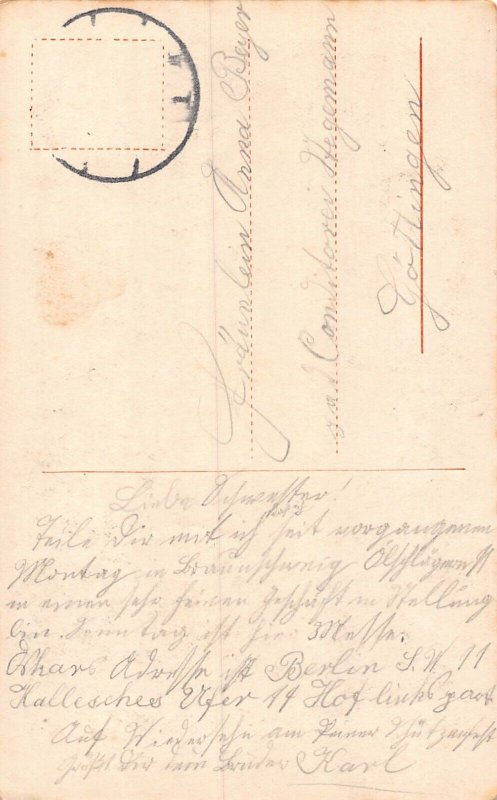 Fräulein Anna Beyer
Conditorei Hegemann
Göttingen
Liebe Schwester!
Teile Dir mit ich seit vorgangenen
Montag in Braunschweig
in einen sehr feinen Geschäft in Stellung
bin. Sonntag ist hier Messe.
Adresse ist Berlin S.W. 11
Hallesches Ufer 14 Hof links part
Auf Wiedersehn am Peiner Schützenfest
Grüßt Dir dein Bruder Karl